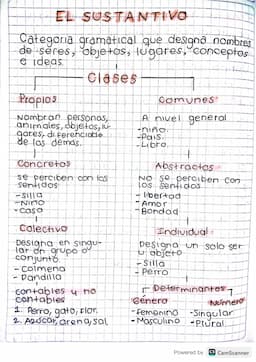 EL SUSTANTIVO
Categoria gramatical que designa nombres
de seres, objetos, lugares, conceptos
e ideas.
Clases
Propios
Nombran personas,
animales, objetos, lu-
gares, diferenciable
de los demás.
Comunes
A nivel general
-niño.
-Pais.
-Libro.
Concretos
se perciben con los
sentidos
-silla
-Niño
-casa
Abstractos
NO se perciben con
los sentidos
-libertad
-Amor
-Bondad
Colectivo
Designa en singu-
lar un grupo o
conjunto.
-Colmena
-Pandilla
Individual
Designa un solo ser
u objeto
-Silla
-Perro
contables y no
contables
1. Perro, gato, flor.
2. Azúcar, arena, sal
Determinantes
Género
-femenino
-Masculino
Número
-Singular
-Plural
Powered by CS CamScanner